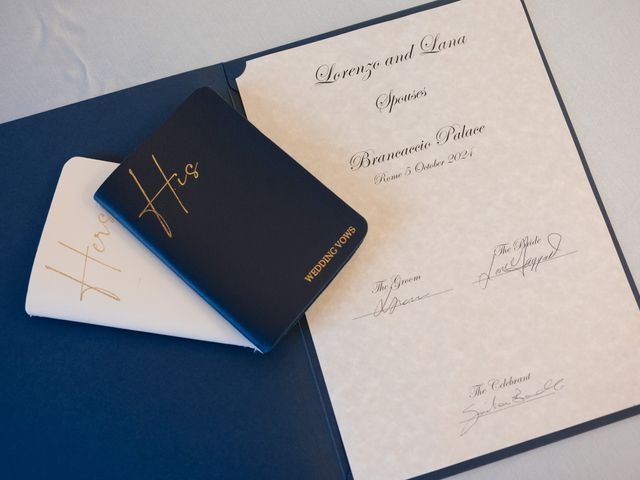 Hers
His
WEDDING VOWS
Lorenzo and Lana
Spouses
Brancaccio Palace
Rome 5 October 2024
The Groom
The Bride
The Celebrant